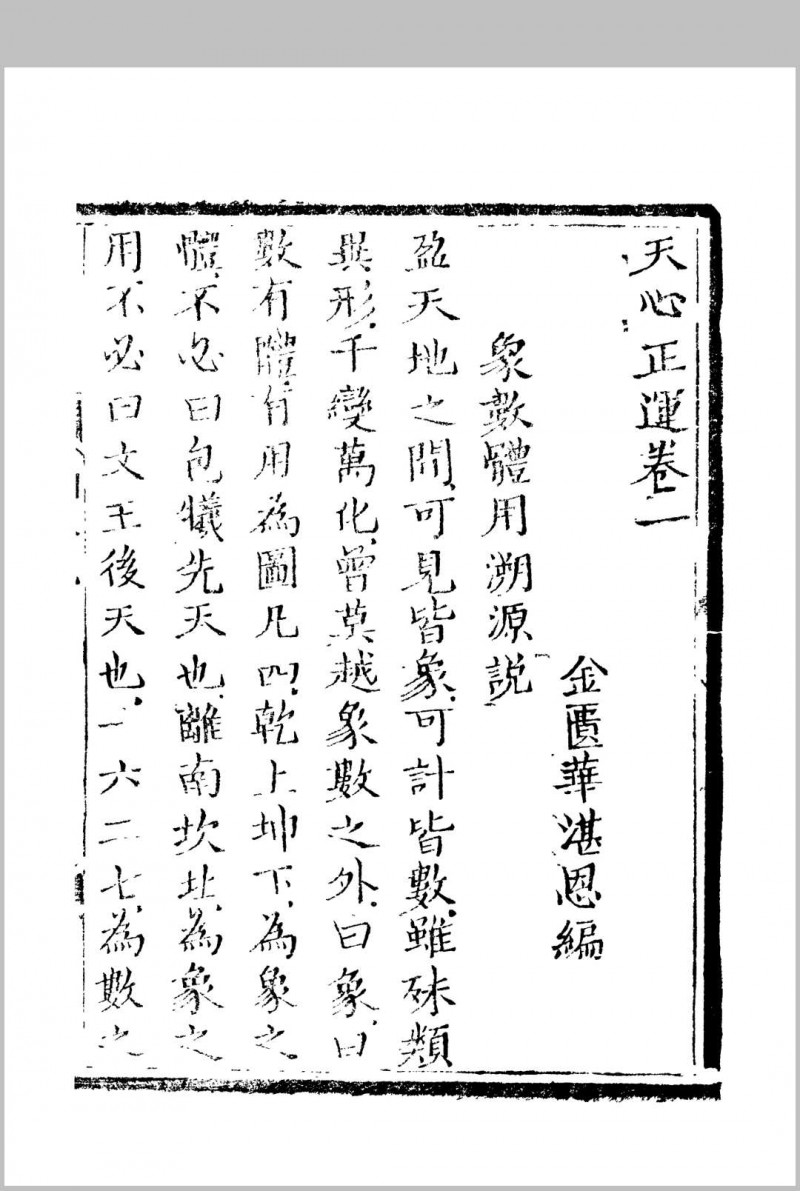 天心正運卷一
金匱華湛恩編
象數體用溯源說
盈天地之間、可見皆象、可計皆數、雖殊類
異形、千變萬化、曾莫越象數之外、曰象、曰
數有體、有用為圖凡四、乾上坤下、為象之
體、不必曰包犧先天也、離南坎北、為象之
用不必曰文王後天也、一六二七、為數之